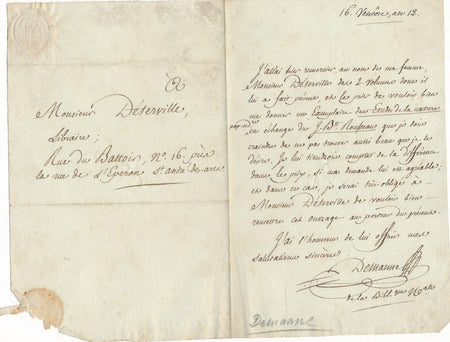 à
Monsieur Déterville,
Libraire;
Rue du Battoir, N.° 16. près
la rue de l'Eperon St. André-des-arcs.
16. Ventôse, an 12.
J'allai hier remercier au nom de ma femme,
Monsieur Déterville des 2 Volumes dont il
lui a fait présent, et le prier de vouloir bien
me donner un Exemplaire des Etudes de la nature
en échange du J. Bte. Rousseau que je dois
craindre de ne pas trouver aussi beau que je le
désire. Je lui tiendrai compte de la différence
dans le prix, si ma demande lui est agréable;
et dans ce cas, je serai très-obligé à
Monsieur Déterville de vouloir bien
remettre cet ouvrage au porteur du présent.
J'ai l'honneur de lui offrir mes
salutations sincères.
Demanne
de la Bibl. que Nale
Demanne